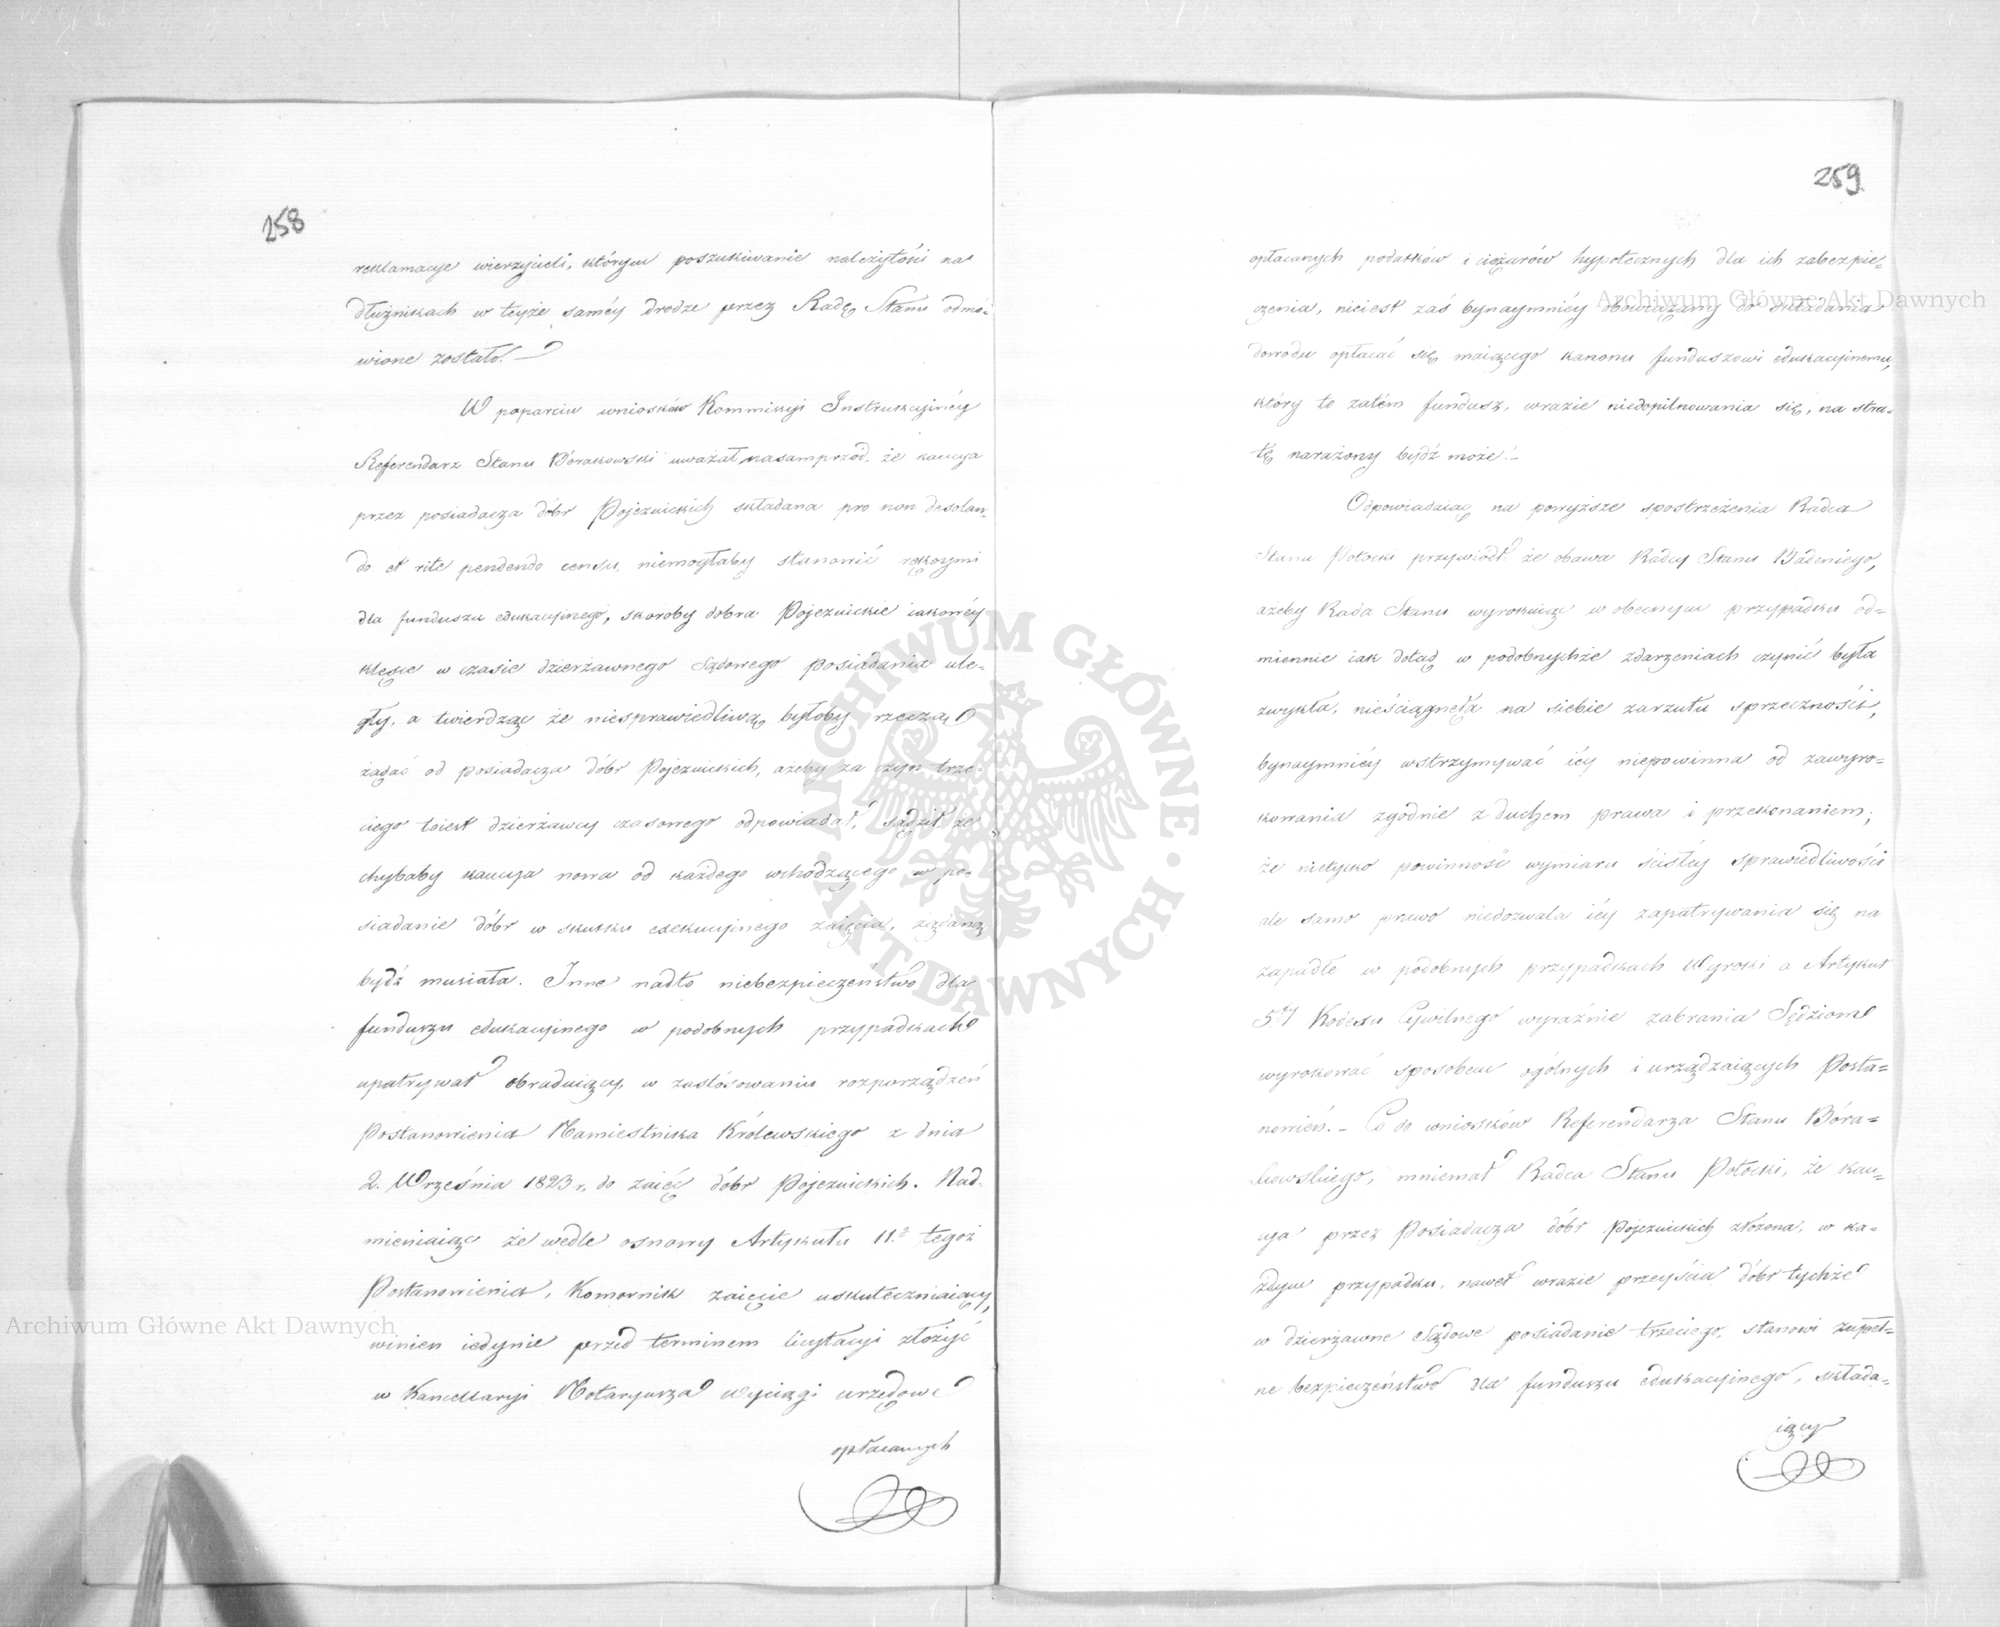 258
reklamacye wierzycieli, którym poszukiwanie należytości na
dłużnikach w teyże saméy drodze przez Radę Stanu odmó-
wione zostało. –
W poparciu wniosków Kommissyi Instrukcyinéy
Referendarz Stanu Bórakowski uważał nasamprzód, że kaucya
przez posiadacza dóbr Pojezuickich składana pro non desolan-
do et rite pendendo censu, niemogłaby stanowić rękoymi
dla funduszu edukacyinego, skoroby dobra Pojezuickie iakowéy
klęsce w czasie dzierżawnego Sądowego posiadania ule-
gły, a twierdząc że niesprawiedliwą byłoby rzeczą
żądać od posiadacza dóbr Pojezuickich, ażeby za czyn trze-
ciego toiest dzierżawcy czasowego odpowiadał, sądził, że
chybaby kaucya nowa od każdego wchodzącego w po-
siadanie dóbr w skutku exekucyinego zaięcia, żądaną
bydź musiała. Inne nadto niebezpieczeństwo dla
funduszu edukacyinego w podobnych przypadkach
upatrywał obraduiący, w zastósowaniu rozporządzeń
Postanowienia Namiestnika Królewskiego z dnia
2. Września 1823 r. do zaięć dóbr Pojezuickich. Nad-
mieniaiąc że wedle osnowy Artykułu 11.º tegoż
Postanowienia, Komornik zaięcie uskuteczniaiący,
winien iedynie przed terminem licytacyi złożyć
w Kancellaryi Notaryusza wyciągi urzędowe
opłacanych
259
opłacanych podatków i ciężarów hypotecznych dla ich zabezpie-
czenia, nieiest zaś bynaymniéy obowiązany do składania
dowodu opłacać się maiącego kanonu funduszowi edukacyinemu,
który to zatém fundusz, wrazie niedopilnowania się, na stra-
tę narażony bydź może. –
Odpowiadaiąc na powyższe spostrzeżenia Radca
Stanu Potocki przywiódł: że obawa Radcy Stanu Badeniego,
ażeby Rada Stanu wyrokuiąc w obecnym przypadku od-
miennie iak dotąd w podobnychże zdarzeniach czynić była
zwykła, nieściągnęła na siebie zarzutu sprzeczności,
bynaymniéy wstrzymywać iéy niepowinna od zawyro-
kowania zgodnie z duchem prawa i przekonaniem;
że nietylko powinność wymiaru ścisłéy sprawiedliwości
ale samo prawo niedozwala iéy zapatrywania się na
zapadłe w podobnych przypadkach Wyroki a Artykuł
5ty Kodexu Cywilnego wyraźnie zabrania Sędziom
wyrokować sposobem ogólnych i urządzaiących Posta-
nowień. – Co do wniosków Referendarza Stanu Bóra-
kowskiego, mniemał Radca Stanu Potocki, że kau-
cya przez Posiadacza dóbr Pojezuickich złożona, w ka-
żdym przypadku, nawet wrazie przeyścia dóbr tychże
w dzierżawne Sądowe posiadanie trzeciego, stanowi zupeł-
ne bezpieczeństwo dla funduszu edukacyinego, składa-
iący
Archiwum Główne Akt Dawnych
Archiwum Główne Akt Dawnych
ARCHIWUM GŁÓWNE
AKT DAWNYCH